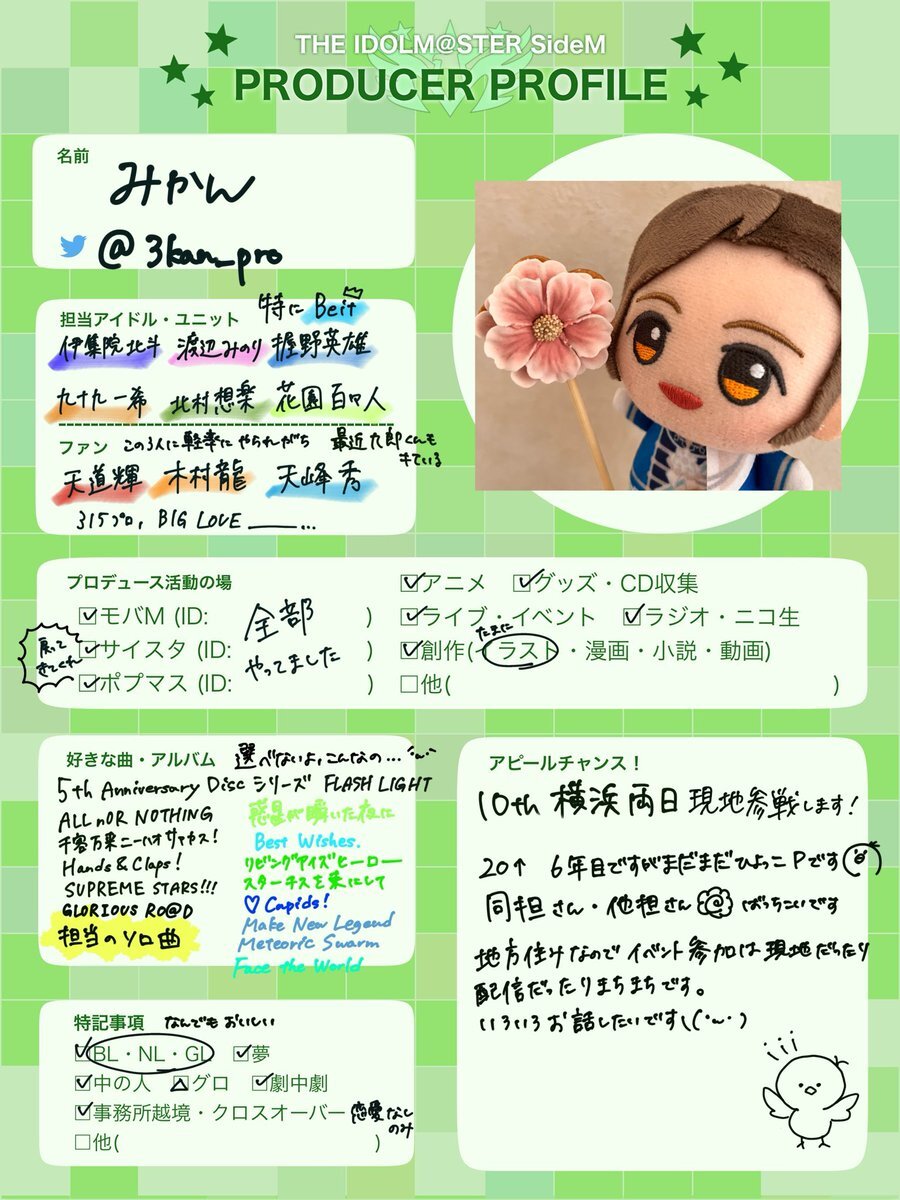 THE IDOLM@STER SideM
PRODUCER PROFILE
名前
みかん
@3kan_pro
担当アイドル・ユニット 特に Beit
伊集院北斗 渡辺みのり 握野英雄
九十九一希 北村想楽 花園百々人
ファン この3人に軽率にやられがち 最近九郎くんも
きている
天道輝 木村龍 天峰秀
315プロ, BIG LOVE ——...
プロデュース活動の場
☑モバM (ID: 全部 )
戻って
きてくれ
☑サイスタ (ID: やってました )
☑ポプマス (ID: )
☑アニメ ☑グッズ・CD収集
☑ライブ・イベント ☑ラジオ・ニコ生
たまに
☑創作(イラスト・漫画・小説・動画)
☐他( )
好きな曲・アルバム 選べないよ、こんなの…
5th Anniversary Disc シリーズ FLASH LIGHT
ALL nOR NOTHING
千客万来ニーハオサーカス!
Hands & Claps!
SUPREME STARS!!!
GLORIOUS RO@D
担当のソロ曲
惑星が瞬いた夜に
Best Wishes,
リビングアイズヒーロー
スターチスを束にして
♡Cupids!
Make New Legend
Meteoric Swarm
Face the World
アピールチャンス!
10th 横浜両日 現地参戦します!
20↑ 6年目ですがまだまだひよっこPです
同担さん・他担さん ばっちこいです
地方住けなのでイベント参加は現地だったり
配信だったりまちまちです。
いろいろお話したいです\(・ω・)
特記事項 なんでもおいしい
☑BL・NL・GL ☑夢
☑中の人 △グロ ☑劇中劇
☑事務所越境・クロスオーバー 恋愛なし
のみ
☐他( )